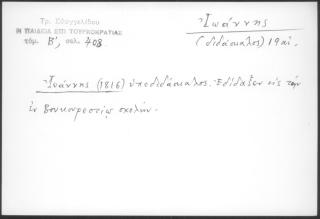 Τρ. Εὐαγγελίδου
Η ΠΑΙΔΕΙΑ ΕΠΙ ΤΟΥΡΚΟΚΡΑΤΙΑΣ
τόμ. Β', σελ. 408
Ἰωάννης
(διδάσκαλος) 19 αἰ.
Ἰωάννης (1816) ὑποδιδάσκαλος. Ἐδίδαξεν εἰς τὴν
ἐν Βουκουρεστίῳ σχολήν.